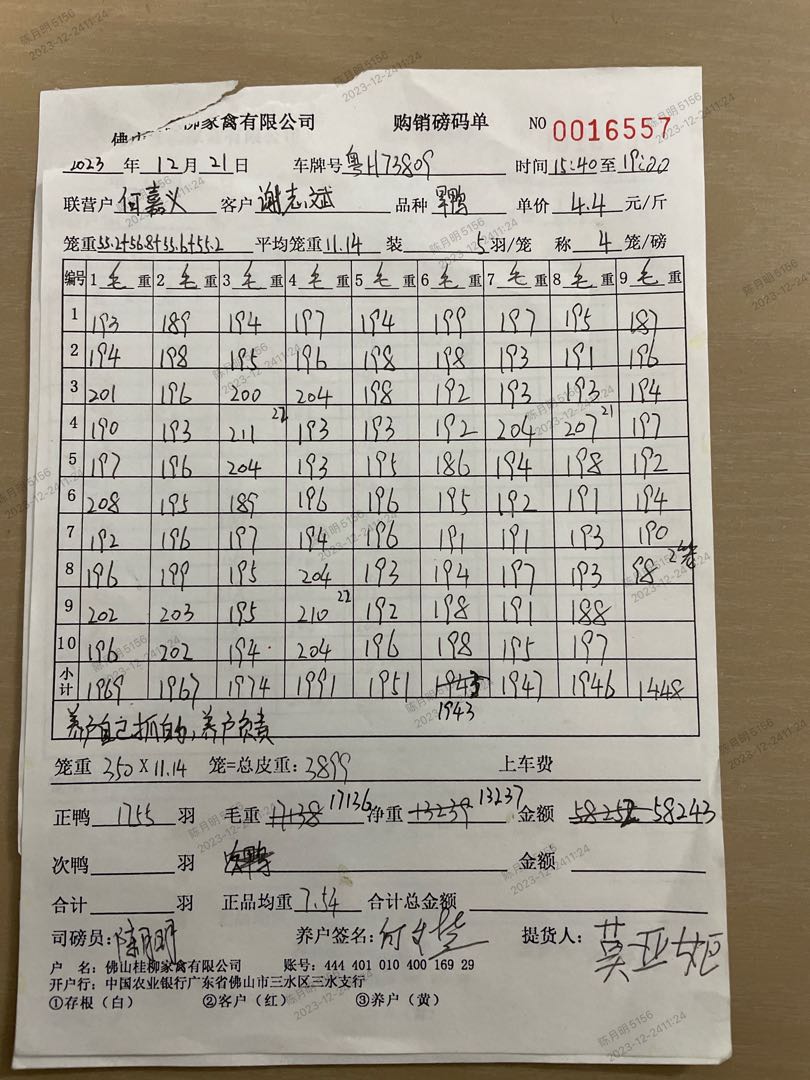 佛山 柳家禽有限公司 购销磅码单 NO 0016557
2023 年 12 月 21 日 车牌号 粤H73809 时间 15:40 至 19:00
联营户 何嘉义 客户 谢志斌 品种 旱鸭 单价 4.4 元/斤
笼重 55.2+56.8+55.6+55.2 平均笼重 11.14 装 5 羽/笼 称 4 笼/磅
编号 1 毛 重 2 毛 重 3 毛 重 4 毛 重 5 毛 重 6 毛 重 7 毛 重 8 毛 重 9 毛 重
1 193 189 194 197 194 199 197 195 187
2 194 198 195 196 198 198 193 191 196
3 201 196 200 204 198 192 193 193 194
4 190 193 211 22 193 193 192 204 207 21 197
5 197 196 204 193 195 186 194 198 192
6 208 195 189 196 196 195 192 191 194
7 192 196 197 194 196 191 191 193 190
8 196 199 195 204 193 194 197 193 98 2笼
9 202 203 195 210 22 192 198 191 188
10 196 202 194 204 196 198 195 197
小计 1969 1967 1974 1991 1951 1943 1947 1946 1448
1943
养户自己抓的,养户负责
笼重 350 X 11.14 笼=总皮重: 3899 上车费
正鸭 1755 羽 毛重 17138 17136 净重 13239 13237 金额 58252 58243
次鸭 羽 金额
合计 羽 正品均重 7.54 合计总金额
司磅员: 陈月明 养户签名: 何 提货人: 莫亚炬
户 名: 佛山桂柳家禽有限公司 账号: 444 401 010 400 169 29
开户行: 中国农业银行广东省佛山市三水区三水支行
①存根（白） ②客户（红） ③养户（黄）
陈月明 5156
2023-12-24 11:24